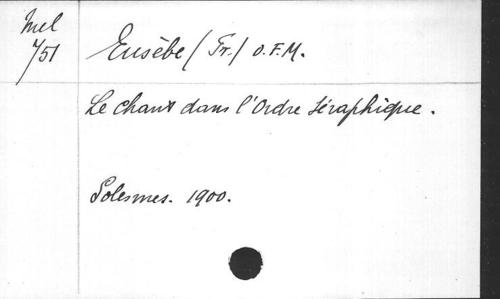 Mel
751
Eusèbe (Fr.) O.F.M.
Le chant dans l'Ordre Séraphique.
Solesmes. 1900.